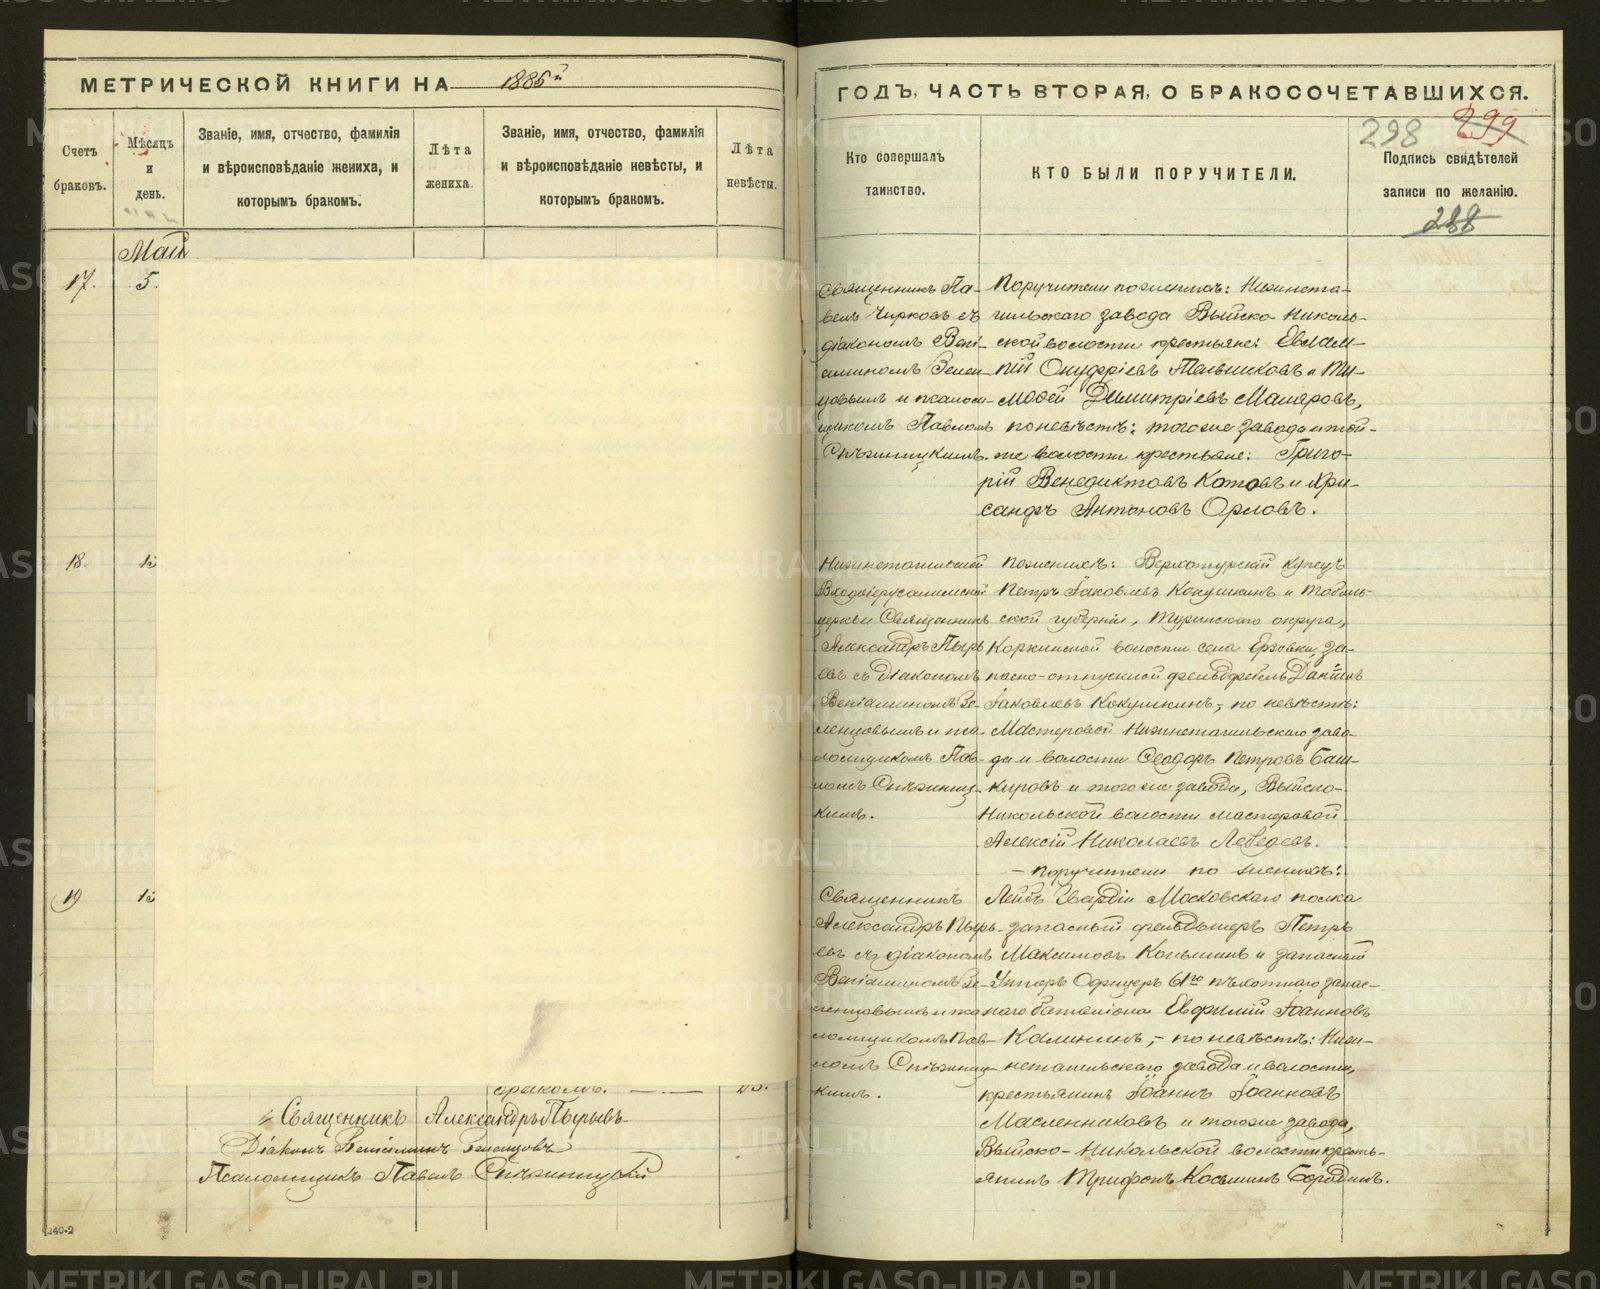 МЕТРИЧЕСКОЙ КНИГИ НА 1886й
Счетъ браковъ.
Мѣсяцъ и день.
Званіе, имя, отчество, фамилія и вѣроисповѣданіе жениха, и которымъ бракомъ.
Лѣта жениха.
Званіе, имя, отчество, фамилія и вѣроисповѣданіе невѣсты, и которымъ бракомъ.
Лѣта невѣсты.
Май
17. 5.
18. 15
19 15
Священникъ Александръ Пырьевъ
Діаконъ Веніаминъ Зеленцовъ
Псаломщикъ Павелъ Спѣжницкій
140-2
ГОДЪ, ЧАСТЬ ВТОРАЯ, О БРАКОСОЧЕТАВШИХСЯ.
298 299
Кто совершалъ таинство.
КТО БЫЛИ ПОРУЧИТЕЛИ.
Подпись свидѣтелей записи по желанію.
288
Священникъ Па-
велъ Чирковъ съ
діакономъ Вені-
аминомъ Зелен-
цовымъ и псалом-
щикомъ Павломъ
Спѣжницкимъ.
Поручители по женихѣ: Нижнета-
гильскаго завода Выйско-Николь-
ской волости крестьяне: Евлам-
пій Онуфріевъ Тальниковъ и Ти-
моѳей Димитріевъ Маляровъ,
по невѣстѣ: тогоже завода и той-
же волости крестьяне: Григо-
рій Венедиктовъ Котовъ и Хри-
санфъ Антоновъ Орловъ.
Нижнетагильской
Входоіерусалимской
церкви Священникъ
Александръ Пырь-
евъ съ Діакономъ
Веніаминомъ Зе-
ленцовымъ и пса-
ломщикомъ Пав-
ломъ Спѣжниц-
кимъ.
По женихѣ: Верхотурскій купецъ
Петръ Іаковлевъ Кокушкинъ и Тоболь-
ской губерніи, Туринскаго округа,
Коркинской волости села Ерзовки, за-
пасно-отпускной фельдфебель Даніилъ
Іаковлевъ Кокушкинъ, по невѣстѣ:
Мастеровой Нижнетагильскаго заво-
да и волости Ѳеодоръ Петровъ Баш-
кировъ и того же завода, Выйско-
Никольской волости мастеровой
Алексій Николаевъ Лебедевъ.
Священникъ
Александръ Пырь-
евъ съ діакономъ
Веніаминомъ Зе-
ленцовымъ и пса-
ломщикомъ Пав-
ломъ Спѣжниц-
кимъ.
- Поручители по женихѣ:
Лейбъ Гвардіи Московскаго полка
запасный фельдшеръ Петръ
Максимовъ Копылинъ и запасный
Унтеръ Офицеръ 61го пѣхотнаго запас-
наго баталіона Евфимій Іоанновъ
Калининъ, - по невѣстѣ: Ниж-
нетагильскаго завода и волости,
крестьянинъ Іоаннъ Іоанновъ
Масленниковъ и тогоже завода,
Выйско-Никольской волости кресть-
янинъ Трифонъ Косьминъ Бородинъ.